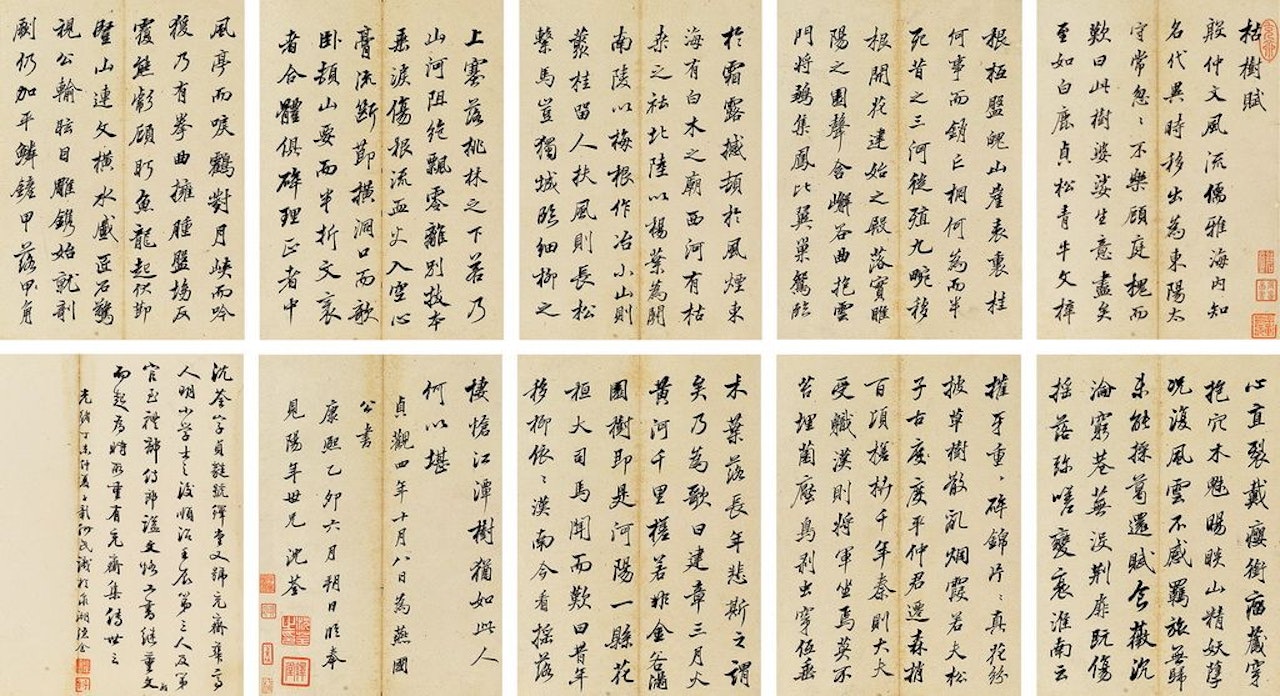 枯樹賦
殷仲文風流儒雅海內知
名代異時移出為東陽太
守常忽〻不樂顧庭槐而
歎曰此樹婆娑生意盡矣
至如白鹿貞松青牛文梓
根柢盤魄山崖表裏桂
何事而銷亡桐何為而半
死昔之三河徙殖九畹移
根開花建始之殿落實睢
陽之園聲含嶰谷曲抱雲
門將鵷集鳳比翼巢鴛臨
於霜露撼頓於風煙東
海有白木之廟西河有枯
桑之社北陸以楊葉為關
南陵以梅根作冶小山則
叢桂留人扶風則長松
繫馬豈獨城臨細柳之
上塞落桃林之下若乃
山河阻絕飄零離別拔本
垂淚傷根流血火入空心
膏流斷節橫洞口而欹
臥頓山要而半折文衺
者合體俱碎理正者中
風亭而唳鶴對月峽而吟
猨乃有拳曲擁腫盤坳反
覆熊彪顧盼魚龍起伏節
豎山連文橫水蹙匠石驚
視公輸眩目雕鐫始就剞
劂仍加平鱗鏟甲落角
心直裂戴癭銜瘤藏穿
抱穴木魅睗睒山精妖孽
況復風雲不感羈旅無歸
未能採葛還賦食薇沉
淪窮巷蕪沒荊扉既傷
搖落彌嗟變衰淮南云
摧牙重〻碎錦片〻真花紛
披草樹散亂烟霞若夫松
子古度平仲君遷森梢
百頃槎枿千年秦則大夫
受職漢則將軍坐焉莫不
苔埋菌壓鳥剝虫穿低垂
木葉落長年悲斯之謂
矣乃為歌曰建章三月火
黃河千里槎若非金谷滿
園樹即是河陽一縣花
桓大司馬聞而歎曰昔年
移柳依〻漢南今看搖落
悽愴江潭樹猶如此人
何以堪
貞觀四年十月八日為燕國
公書
康熙乙卯六月朔日臨奉
見陽年世兄 沈荃
沈荃字貞蕤號繹堂又號充齋華亭
人明少學士之後順治壬辰第三人及第
官至禮部侍郎諡文恪工書繼董文
而起為時所重有充齋集傳世